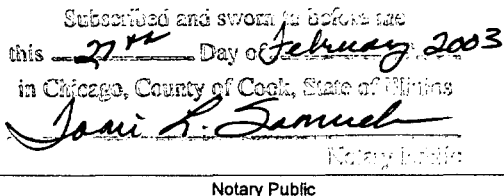 Subscribed and sworn to before me
this 27th Day of February 2003
in Chicago, County of Cook, State of Illinois
L. Samuels
Notary Public
Notary Public